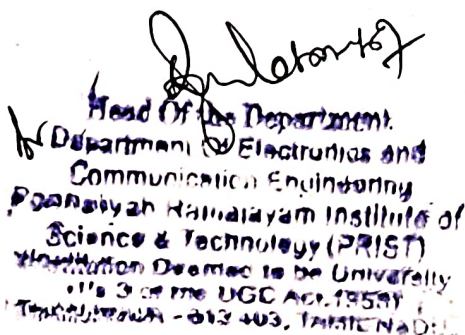 Head Of the Department
Department of Electronics and
Communication Engineering
Ponnaiyah Ramajayam Institute of
Science & Technology (PRIST)
Institution Deemed to be University
U/s 3 of the UGC Act, 1956)
- 613 403, TAMIL NADU